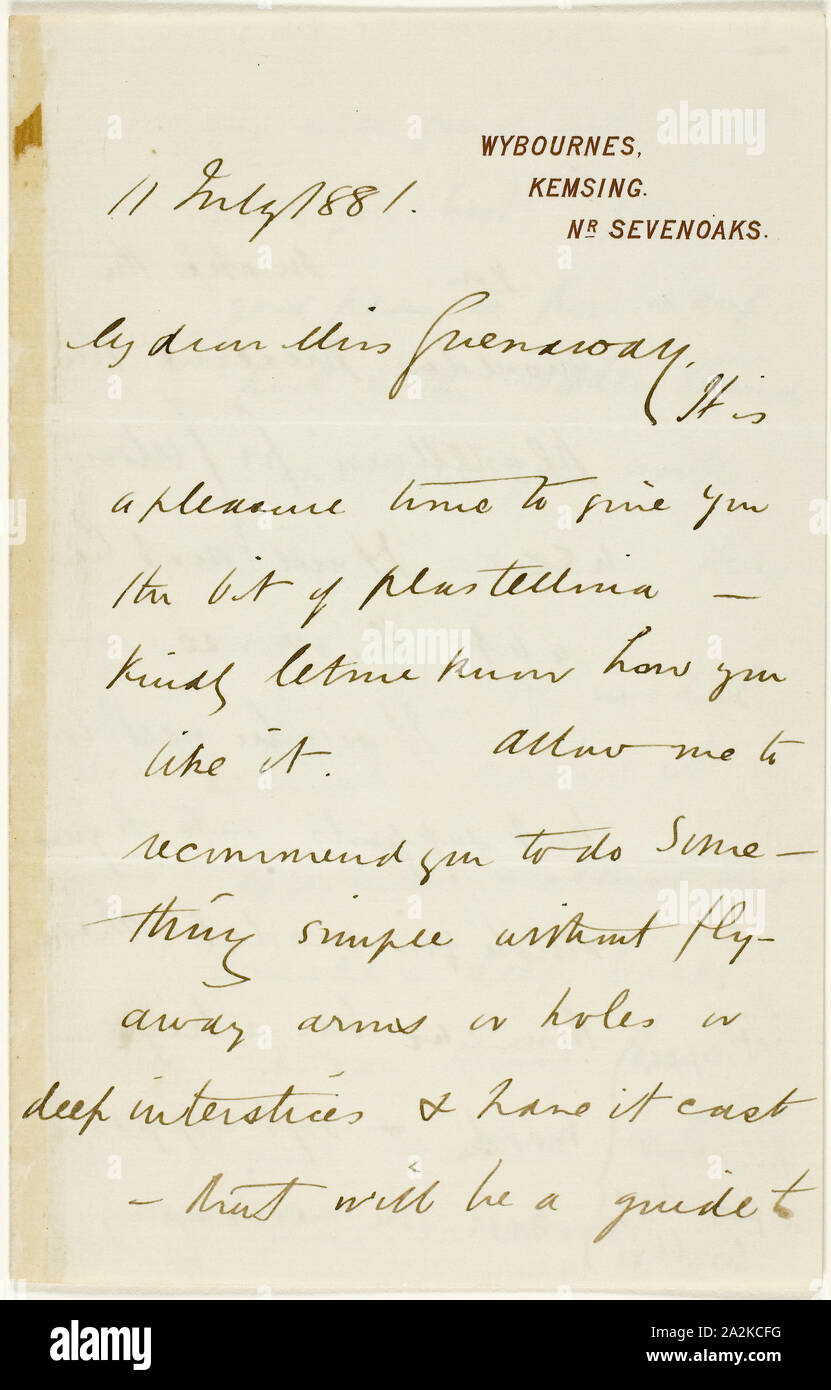 WYBOURNES,
KEMSING.
NR SEVENOAKS.
11 July 1881.
My dear Miss Greenaway,
It is
a pleasure to me to give you
the bit of plastellina —
kindly let me know how you
like it. Allow me to
recommend you to do some—
thing simple without fly-
away arms or holes or
deep interstices & have it cast
— that will be a guide to
alamy
Image ID: A2KCFG
www.alamy.com